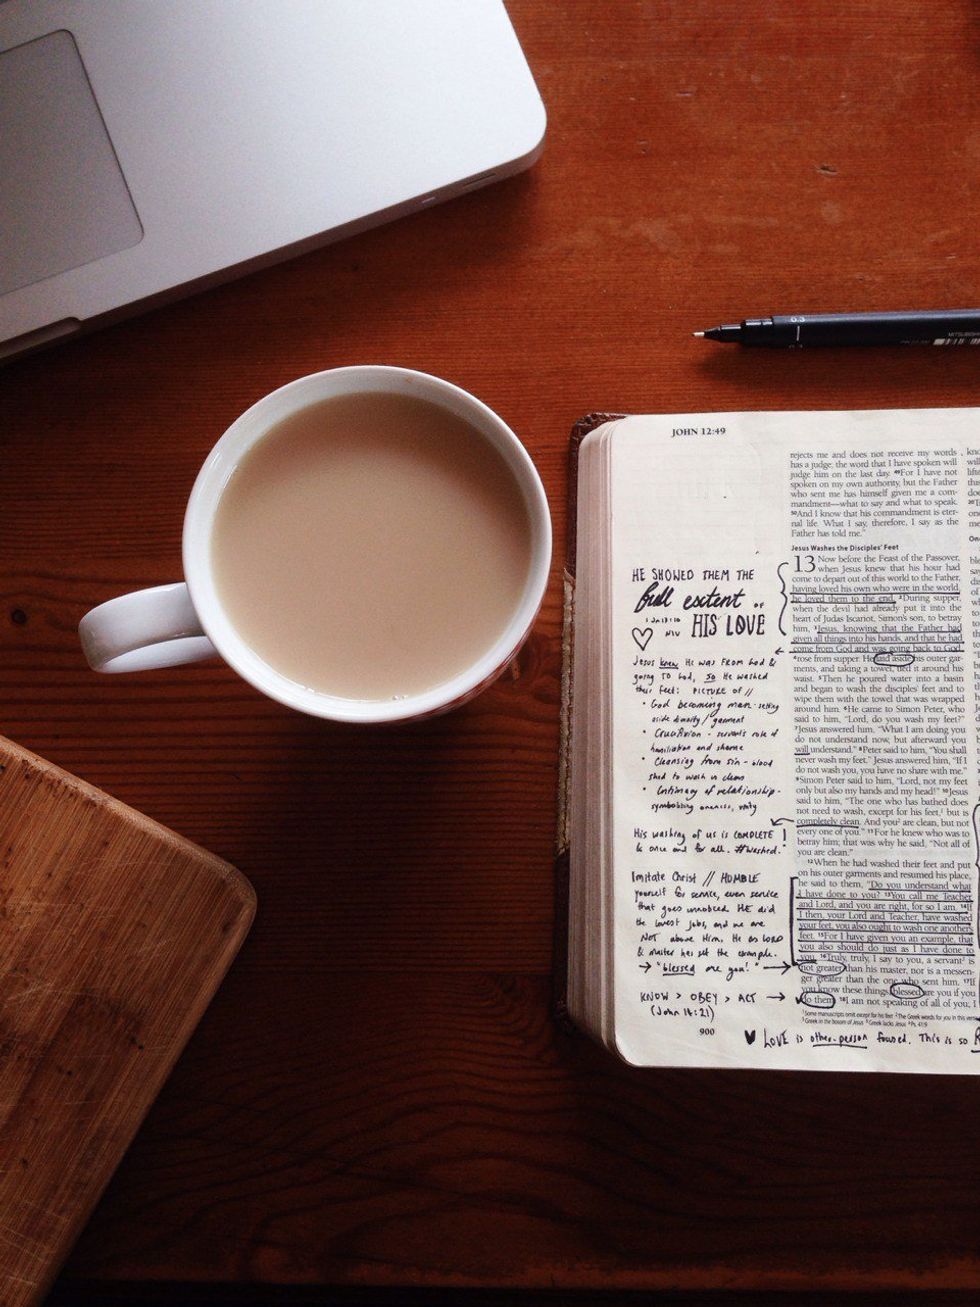 0.3
MITSUBISHI
JOHN 12:49
rejects me and does not receive my words
has a judge; the word that I have spoken will
judge him on the last day. 49For I have not
spoken on my own authority, but the Father
who sent me has himself given me a com-
mandment—what to say and what to speak.
50And I know that his commandment is eter-
nal life. What I say, therefore, I say as the
Father has told me."
Jesus Washes the Disciples' Feet
13 Now before the Feast of the Passover,
when Jesus knew that his hour had
come to depart out of this world to the Father,
having loved his own who were in the world,
he loved them to the end. 2During supper,
when the devil had already put it into the
heart of Judas Iscariot, Simon's son, to betray
him, 3Jesus, knowing that the Father had
given all things into his hands, and that he had
come from God and was going back to God,
4rose from supper. He laid aside his outer gar-
ments, and taking a towel, tied it around his
waist. 5Then he poured water into a basin
and began to wash the disciples' feet and to
wipe them with the towel that was wrapped
around him. 6He came to Simon Peter, who
said to him, "Lord, do you wash my feet?"
7Jesus answered him, "What I am doing you
do not understand now, but afterward you
will understand." 8Peter said to him, "You shall
never wash my feet." Jesus answered him, "If I
do not wash you, you have no share with me."
9Simon Peter said to him, "Lord, not my feet
only but also my hands and my head!" 10Jesus
said to him, "The one who has bathed does
not need to wash, except for his feet, but is
completely clean. And you are clean, but not
every one of you." 11For he knew who was to
betray him; that was why he said, "Not all of
you are clean."
12When he had washed their feet and put
on his outer garments and resumed his place,
he said to them, "Do you understand what
I have done to you? 13You call me Teacher
and Lord, and you are right, for so I am. 14If
I then, your Lord and Teacher, have washed
your feet, you also ought to wash one another's
feet. 15For I have given you an example, that
you also should do just as I have done to
you. 16Truly, truly, I say to you, a servant is
not greater than his master, nor is a messen-
ger greater than the one who sent him. 17If
you know these things, blessed are you if you
do them. 18I am not speaking of all of you; I
1Some manuscripts omit except for his feet 2The Greek words for you in this verse
3Greek in the bosom of Jesus
HE SHOWED THEM THE
full extent OF
HIS LOVE
NIV
Jesus knew He was FROM God &
going TO God, so He washed
their feet: PICTURE OF //
• God becoming man - setting
aside divinity / garment
• Crucifixion - servant's role of
humiliation and shame
• Cleansing from sin - blood
shed to wash us clean
• Intimacy of relationship -
symbolising oneness, unity
His washing of us is COMPLETE!
& once and for all. #washed.
Imitate Christ // HUMBLE
yourself for service, even service
that goes unnoticed. HE did
the lowest jobs, and we are
NOT above Him. He as LORD
& master has set the example.
→ "blessed are you!" →
KNOW > OBEY > ACT →
(John 14:21)
900
♥ LOVE is other-person focused. This is so